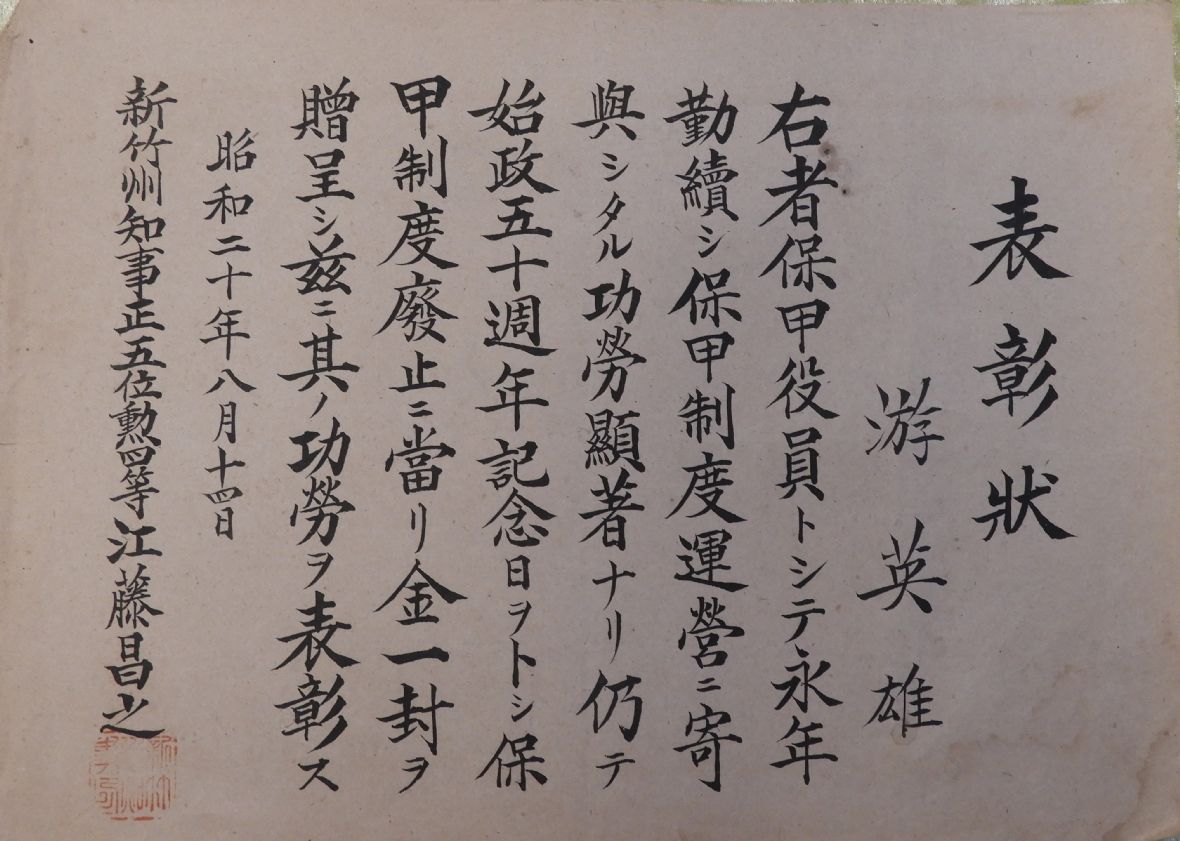 表彰狀
游英雄
右者保甲役員トシテ永年
勤續シ保甲制度運營ニ寄
與シタル功勞顯著ナリ仍テ
始政五十週年記念日ヲトシ保
甲制度廢止ニ當リ金一封ヲ
贈呈シ茲ニ其ノ功勞ヲ表彰ス
昭和二十年八月十四日
新竹州知事正五位勲四等江藤昌之